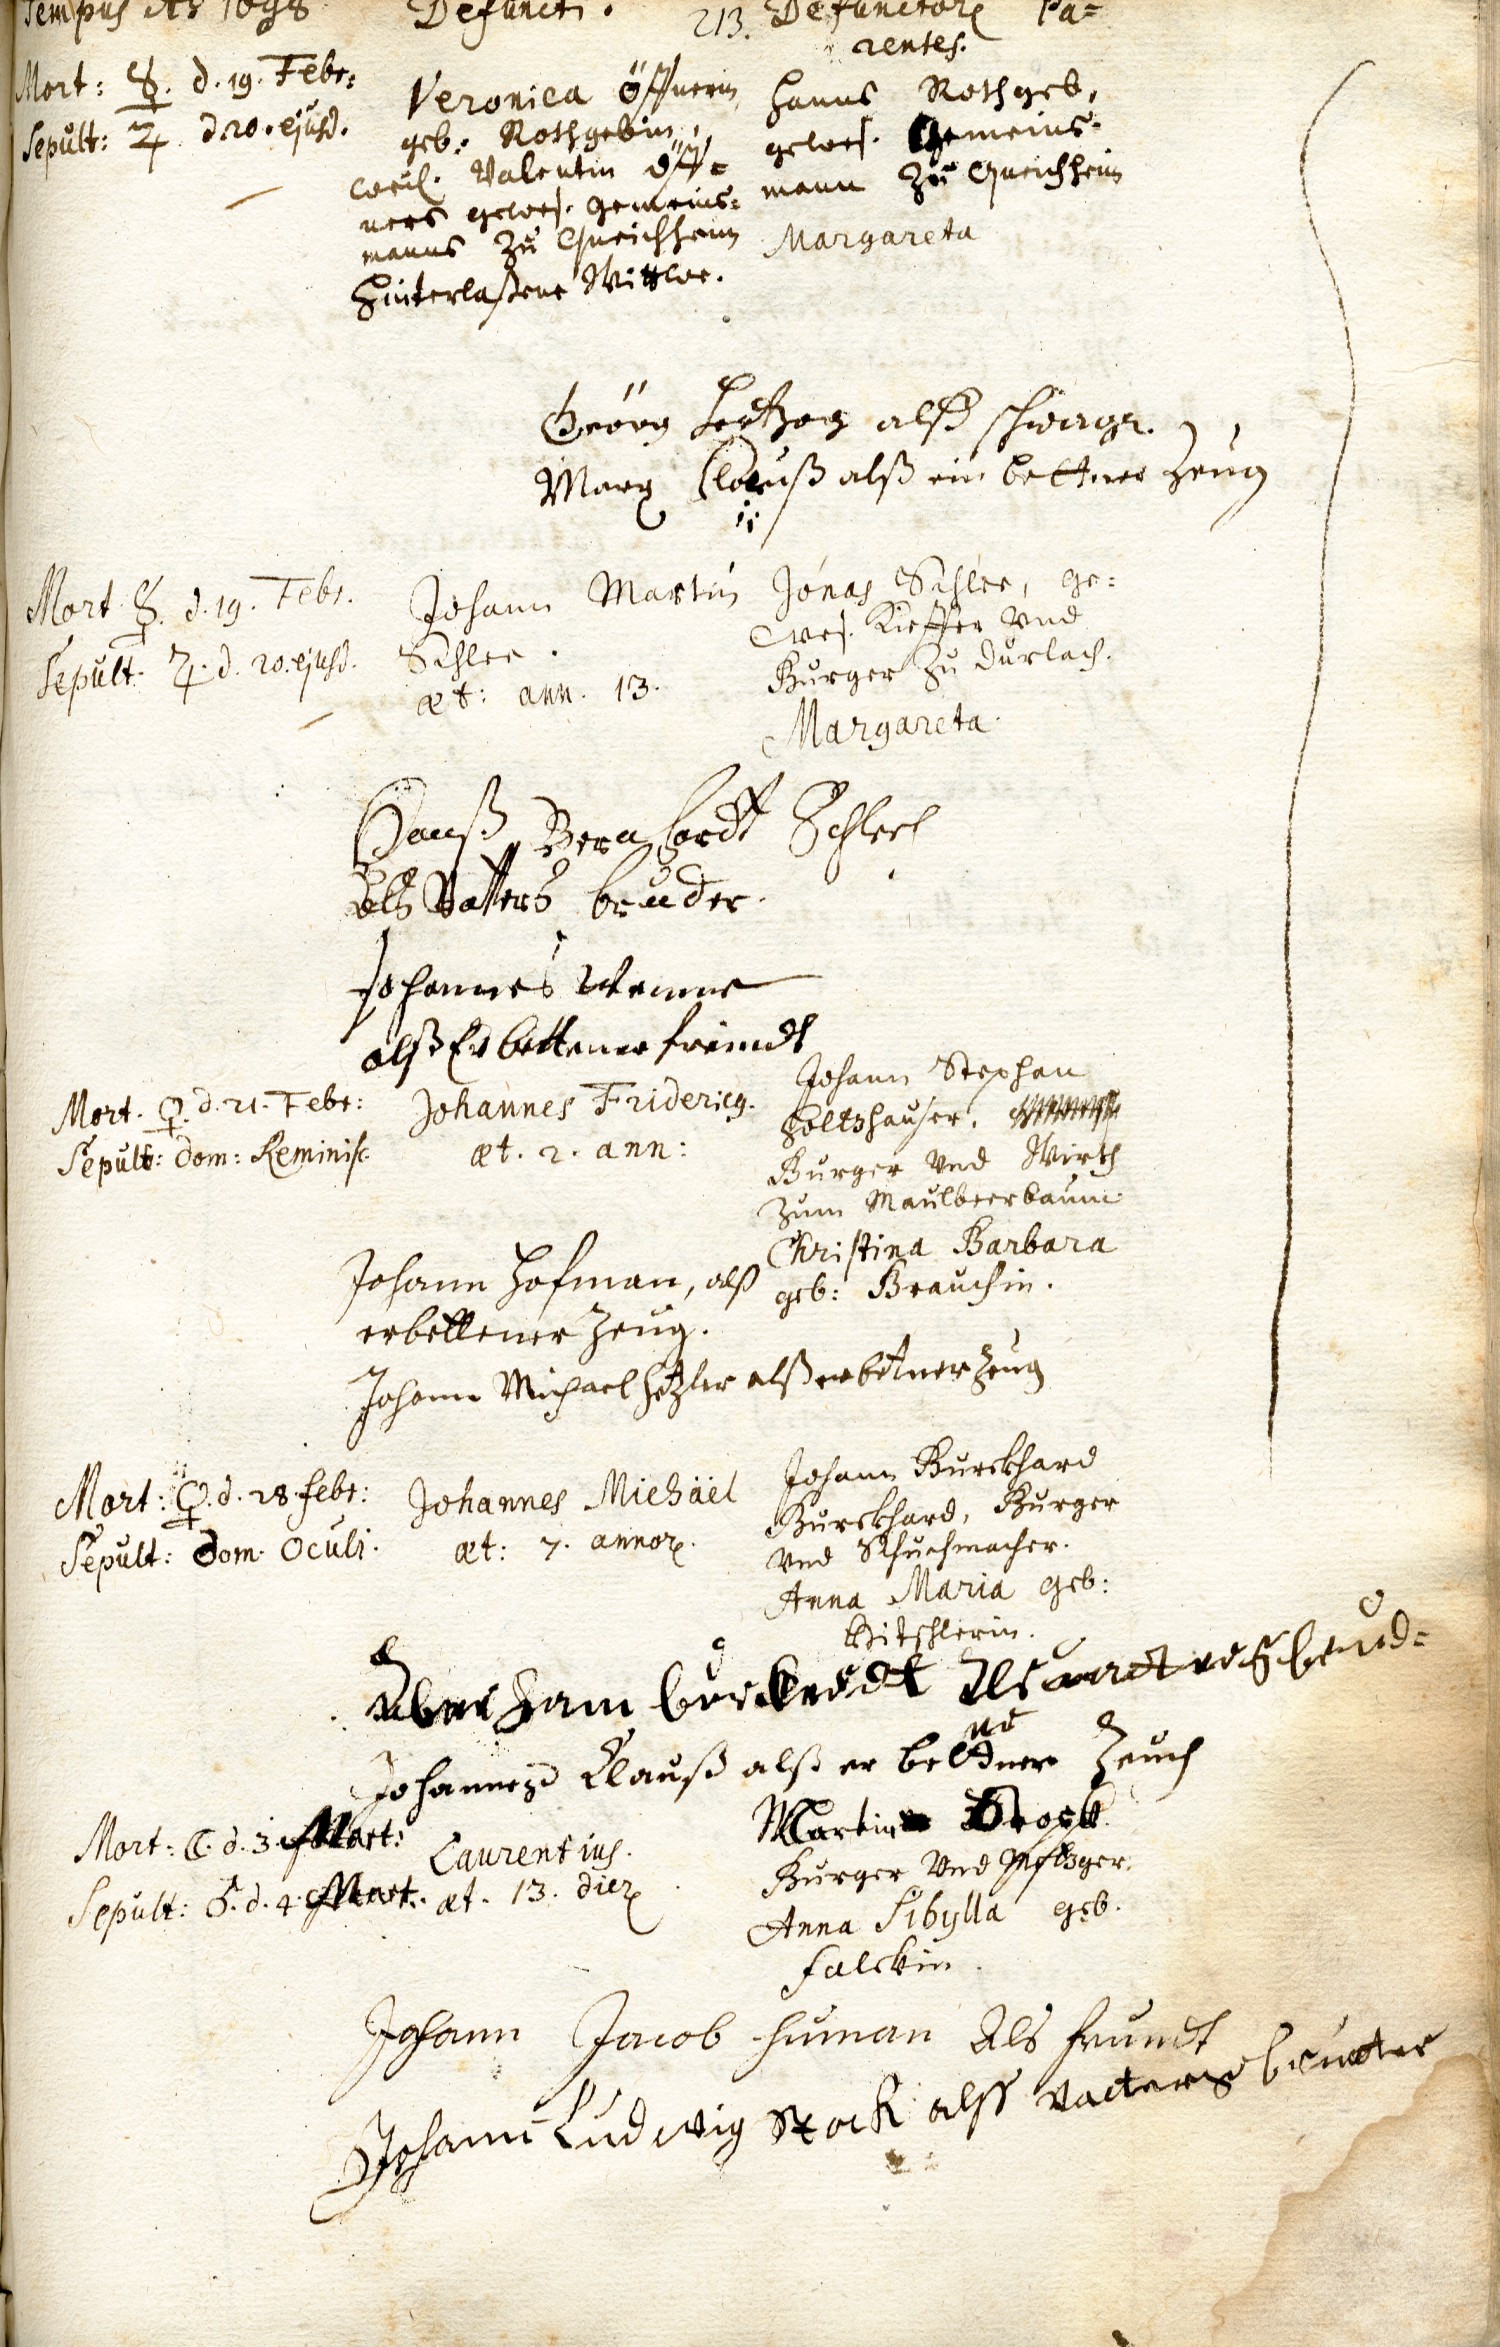 Tempus Ao 1698
Defuncti.
213.
Defunctorum Pa=
rentes.
Mort: ☿. d. 19. Febr:
Sepult: ♃ d. 20. ejusd.
Veronica
geb: Rothgebin,
weil. Valentin Öff=
ners gewes. Gemeins=
manns zu
Hinterlaßene Wittwe.
Hanns Rothgeb,
gewes. Gemeins=
mann zu
Margareta
Geörg Hertzog alß schwagr.
Marx Clauß alß ein bettner Zeug
Mort. ☿. d. 19. Febr.
Sepult. ♃. d. 20. ejusd.
Johann Martin
Schlee.
æt: ann. 13.
Jonas Schlee, ge=
wes. Kieffer Vnd
Burger Zu Durlach.
Margareta.
Hanß Bernhardt Schlech
Als Vatters bruder.
Johannes
alß Er bettener freundt
Mort. ♀. d. 21. Febr:
Sepult: Dom: Reminisc.
Johannes Fridericg.
æt. 2. ann:
Johann Stephan
Holtzhauser,
Burger Vnd Wirth
zum Maulbeerbaum
Christina Barbara
geb: Brauchin.
Johann Hofman, alß
erbettener Zeug.
Johann Michael Hetzler alß erbetner Zeug
Mort: ♀. d. 28. Febr:
Sepult: Dom. Oculi.
Johannes Michäel
æt: 7. annor.
Johann Burckhard
Burckhard, Burger
Vnd Schuchmacher.
Anna Maria geb:
Kitschlerin.
Abraham Als
Johannes Clauß alß er bettner Zeuch
Mort: ☾. d. 3. Mart:
Sepult: d. 4. Mart.
Laurentius.
æt. 13. dier
Martin Stock
Burger Vnd Metzger.
Anna Sibylla geb.
Falckin.
Johann Jacob Human Als freundt
Johann Ludwig Stock alß vatters bruoter